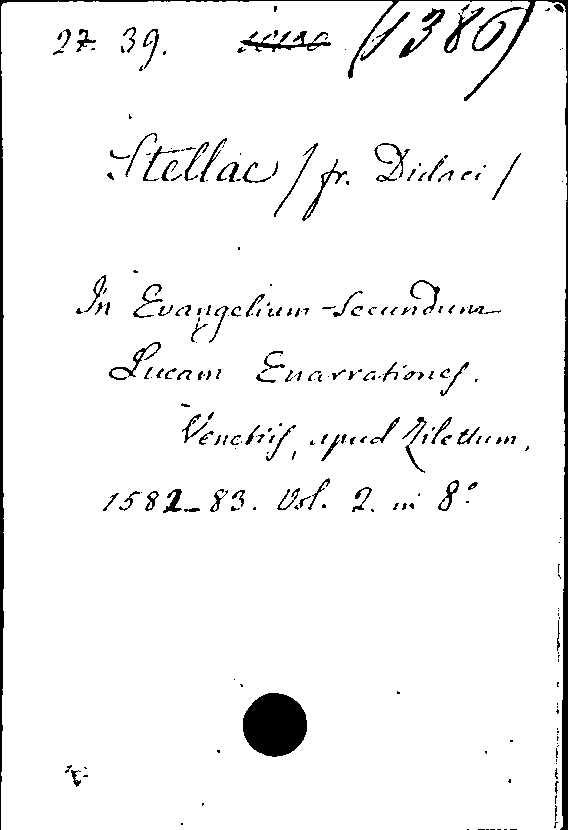 27. 39. (1386)
Stellae / fr. Didaci /
In Evangelium Secundum
Lucam Enarrationes.
Venetiis, apud Zilettum,
1582-83. Vol. 2. in 8°